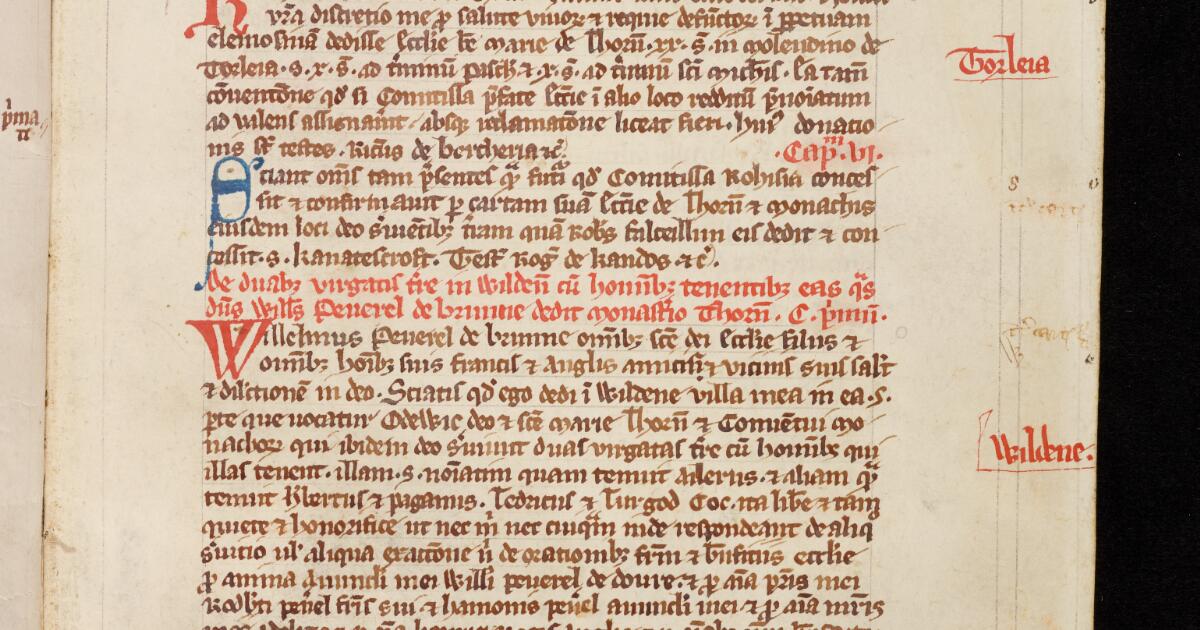 vr̄a discretio me p̱ salute vivoꝝ & requie defūctoꝝ ī ꝑpetuam
elemosinā dedisse Ecclie bē Marie de Thorn̄. xx. s̄. in molendino de
Torleia. s. x. s̄. ad t̄minū pasch̄ & x. s̄. ad t̄minū sc̄i Mich̄is. Ea tam̄
cōuentōne qd̄ si Comitissa p̄fate Ecc̄ie ī alio loco redditū p̄noīatum
ad valens assignauit absq̨ reclamatōne liceat fieri. hui᷒ donatio
nis st̄ testes. Ric̄us de bercheria &c̄.
.Cap̄m. vi.
Sciant om̄s tam p̄sentes q̄ fut̄i qd̄ Comitissa Rohisia conces
sit & confirmauit p̱ cartam suā Ecc̄ie de Thorn̄ & monachis
eiusdem loci deo s̄uientibꝫ t̄ram quā Rob̄s fulcellun eis dedit & con
cessit. s. kanatescroft. Test̄ Roḡ de kandos. &c̄.
De duabꝫ virgatis t̄re in Wilden̄ cū hom̄ibꝫ tenentibꝫ eas q̄s
dn̄s Will̄s Peuerel de brunne dedit monast̄io Thorn̄. C. p̄mū.
Willelmus Peuerel de brunne om̄ibꝫ sc̄e dei Ecclie filiis &
omībꝫ hoībꝫ suis francis & Anglis amicis & vicinis suis salt̄
& dilctionē in deo. Sciatis qd̄ ego dedi ī Wildene villa mea in ea. s.
p̱te que uocatur Odewic deo & sc̄e Marie Thorn̄ & Conuētui mo
nachoꝝ qui ibidem deo s̄uiunt duas virgatas t̄re cū hom̄ibꝫ qui
illas tenent. illam. s. noīatim quam tenuit Ailerus. & aliam q̄
tenuit h̄bertus & paganus. Ledricus & Turgod Coc. ita lib̄e & tam
quiete & honorifice ut nec m̄ nec cuiq̄m inde respondeant de aliq̄
s̄uitio ul̄ aliqua exactōne n̄ de orationibꝫ fr̄m & bn̄ficiis ecclie
p̱ anima Auunculi mei Willi peuerel de doure. & p̱ aīa pat̄s mei
Rodb̄ti peu̅el fr̄is sui & hamonis peu̅el auunculi mei & p̱ aīa mr̄is
Torleia
Wildene.
p̄ma